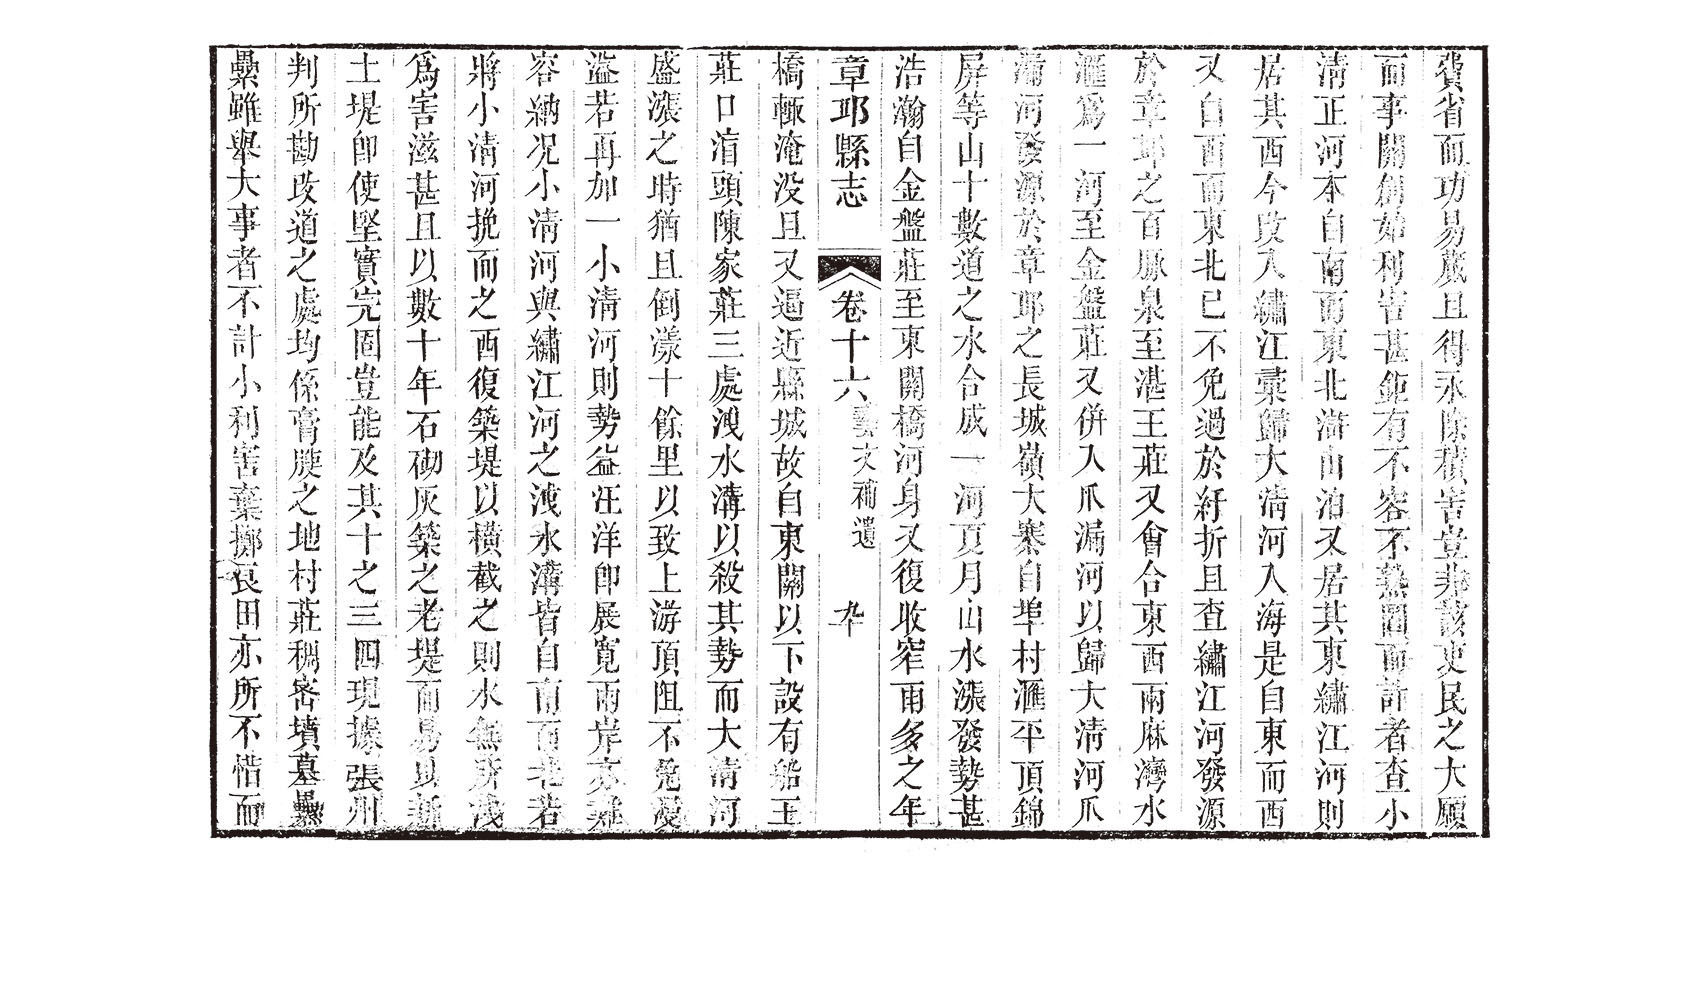 費省而功易蕆且得永除積害豈非該吏民之大願
而事關創始利害甚鉅有不容不熟圖而計者查小
清正河本自南而東北滸山泊又居其東繡江河則
居其西今改入繡江橐歸大清河入海是自東而西
又自西而東北已不免過於紆折且查繡江河發源
於章邱之百脈泉至湛王莊又會合東西兩麻灣水
滙爲一河至金盤莊又併入爪漏河以歸大清河爪
漏河發源於章邱之長城嶺大寨自埠村滙平頂錦
屏等山十數道之水合成一河夏月山水漲發勢甚
浩瀚自金盤莊至東關橋河身又復收窄雨多之年
章邱縣志 卷十六藝文補遺 九十
橋輒淹没且又逼近縣城故自東關以下設有船王
莊口㳙頭陳家莊三處洩水溝以殺其勢而大清河
盛漲之時猶且倒漾十餘里以致上游頂阻不免漫
溢若再加一小清河則勢益汪洋卽展寛兩岸亦難
容納况小清河與繡江河之洩水溝皆自南而北若
將小清河挽而之西復築堤以橫截之則水無所洩
爲害滋甚且以數十年石砌灰築之老堤而易以新
土堤卽使堅實完固豈能及其十之三四現據張州
判所勘改道之處均係膏腴之地村莊稠密墳墓纍
纍雖舉大事者不計小利害棄擲良田亦所不惜而